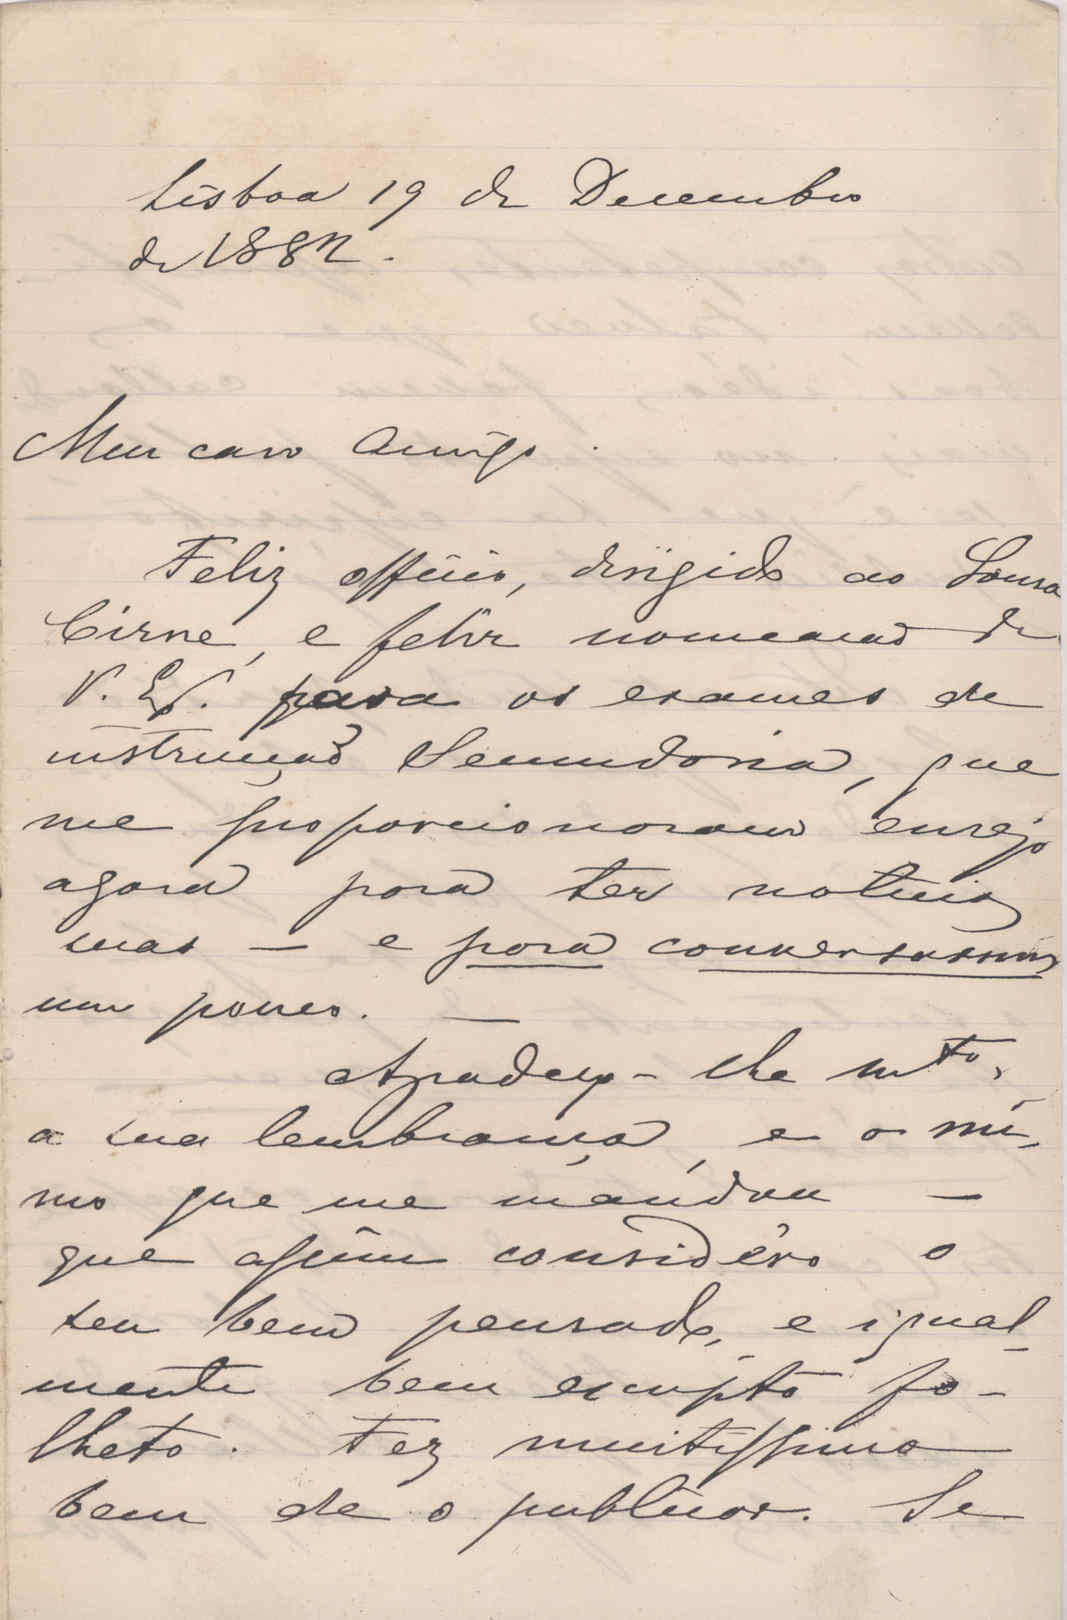 Lisboa 19 de Dezembro
de 1882.
Meu caro Amigo.
Feliz officio, dirigido ao Sousa
Cirne, e feliz nomeacao de
V. Exª. para os exames de
instrucção Secundaria, que
me proporcionaram ensejo
agora para ter noticias
suas — e para conversarmos
um pouco. —
Agradeço-lhe mto,
a sua lembrança, e o mi-
mo que me mandou —
que assim considéro o
seu bem pensado, e igual-
mente bem escripto fo-
lheto. Fez muitissimo
bem de o publicar. Se